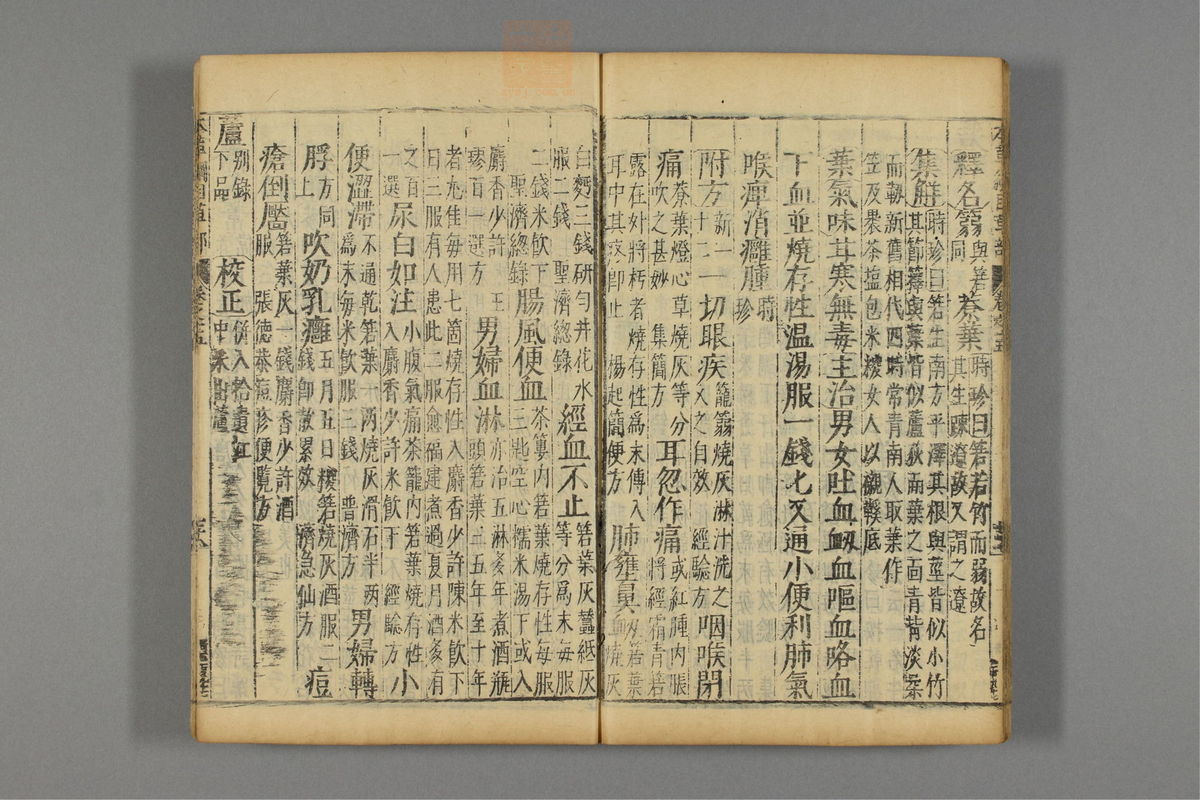 釋名篛與箬同䕠葉時珍曰箬若竹而弱故名其生疎遼故又謂之遼
集解時珍曰箬生南方平澤其根與莖皆似小竹其節籜與葉皆似蘆荻而葉之面青背淡柔
而韌新舊相代四時常青南人取葉作笠及裹茶塩包米糉女人以襯鞋底
葉氣味甘寒無毒主治男女吐血衄血嘔血咯血
下血並燒存性温湯服一錢匕又通小便利肺氣
喉痺消癰腫時珍
附方新一十二一切眼疾籠篛燒灰淋汁洗之久之自效 經驗方咽喉閉
痛䕠葉燈心草燒灰等分吹之甚妙 集簡方耳忽作痛或紅腫內脹將經霜青箬
露在外將朽者燒存性爲末傅入耳中其疼即止 楊起簡便方肺壅鼻衄箬葉燒灰
白麪三錢研匀井花水服二錢 聖濟總錄經血不止箬葉灰蠶紙灰等分爲末每服
二錢米飲下 聖濟總錄腸風便血茶簍內箬葉燒存性每服三匙空心糯米湯下或入
麝香少許 王璆百一選方男婦血淋亦治五淋多年煮酒瓶頭箬葉三五年至十年
者尤佳每用七箇燒存性入麝香少許陳米飲下日三服有人患此二服愈福建煮過夏月酒多有
之百一選方尿白如注小腹氣痛茶籠內箬葉燒存性入麝香少許米飲下 經驗方小
便澀滯不通乾箬葉一兩燒灰滑石半兩爲末每米飲服三錢 普濟方男婦轉
脬方同上吹奶乳癰五月五日糉箬燒灰酒服二錢即散累效 濟急仙方痘
瘡倒靨箬葉灰一錢麝香少許酒服 張德恭痘疹便覽方
蘆別錄下品校正併入拾遺江中采出蘆